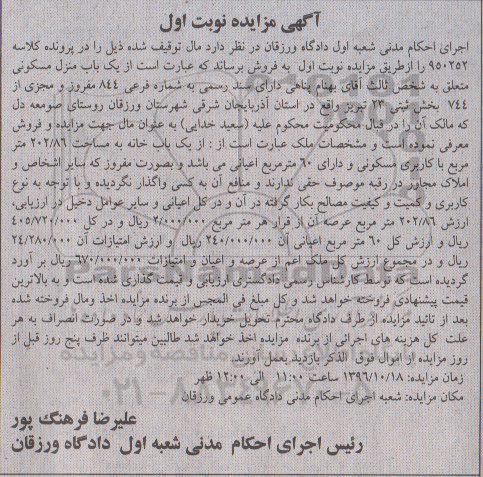 آگهی مزایده نوبت اول
اجرای احکام مدنی شعبه اول دادگاه ورزقان در نظر دارد مال توقیف شده ذیل را در پرونده کلاسه
۹۵۰۲۵۲ را ازطریق مزایده نوبت اول به فروش برساند که عبارت است از یک باب منزل مسکونی
متعلق به شخص ثالث آقای بهنام پناهی دارای سند رسمی به شماره فرعی ۸۴۴ مفروز و مجزی از
۷۴۴ بخش ثبتی ۲۳ تبریز واقع در استان آذربایجان شرقی شهرستان ورزقان روستای صومعه دل
که مالک آن را در قبال محکومیت محکوم علیه (سعید خدایی) به عنوان مال جهت مزایده و فروش
معرفی نموده است و مشخصات ملک عبارت است از : از یک باب خانه به مساحت ۲۰۲/۸۶ متر
مربع با کاربری مسکونی و دارای ۶۰ مترمربع اعیانی می باشد و بصورت مفروز که سایر اشخاص و
املاک مجاور در رقبه موصوف حقی ندارند و منافع آن به کسی واگذار نگردیده و با توجه به نوع
کاربری و کمیت و کیفیت مصالح بکار گرفته در آن و در کل اعیانی و سایر عوامل دخیل در ارزیابی،
ارزش ۲۰۲/۸۶ متر مربع عرصه آن از قرار هر متر مربع ۲/۰۰۰/۰۰۰ ریال و در کل ۴۰۵/۷۲۰/۰۰۰
ریال و ارزش کل ۶۰ متر مربع اعیانی آن ۲۴۰/۰۰۰/۰۰۰ ریال و ارزش امتیازات آن ۲۴/۲۸۰/۰۰۰
ریال و در مجموع ارزش کل ملک اعم از عرصه و اعیان و امتیازات ۶۷۰/۰۰۰/۰۰۰ ریال بر آورد
گردیده است که توسط کارشناس رسمی دادگستری ارزیابی و قیمت گذاری شده است و به بالاترین
قیمت پیشنهادی فروخته خواهد شد و کل مبلغ فی المجلس از برنده مزایده اخذ ومال فروخته شده
بعد از تائید مزایده از طرف دادگاه محترم تحویل خریدار خواهد شد و در صورت انصراف به هر
علت کل هزینه های اجرائی از برنده مزایده اخذ خواهد شد طالبین میتوانند ظرف پنج روز قبل از
روز مزایده از اموال فوق الذکر بازدید بعمل آورند.
زمان مزایده: ۱۳۹۶/۱۰/۱۸ ساعت ۱۱:۰۰ الی ۱۲:۰۰ ظهر
مکان مزایده: شعبه اجرای احکام مدنی دادگاه عمومی ورزقان
علیرضا فرهنگ پور
رئیس اجرای احکام مدنی شعبه اول دادگاه ورزقان
ParsNamadData